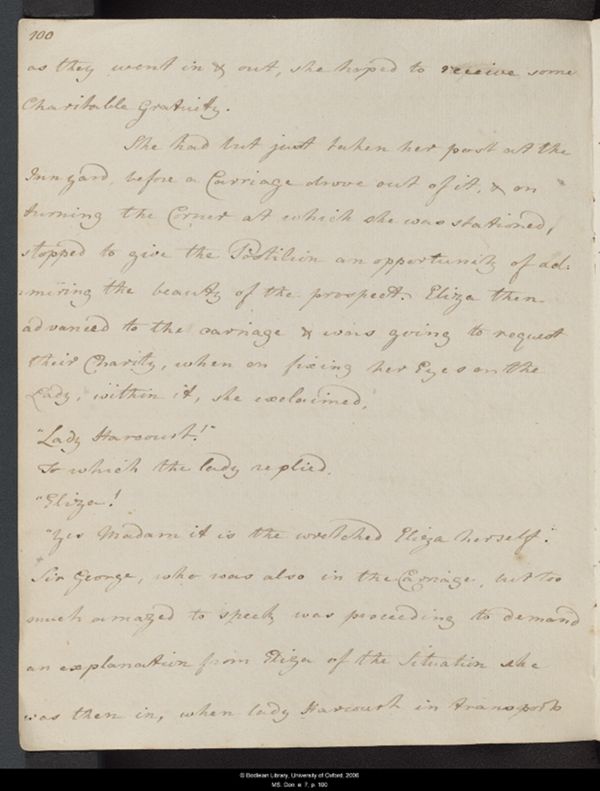 100
as they went in & out, she hoped to receive some
Charitable Gratuity.
She had but just taken her post at the
Innyard before a Carriage drove out of it, & on
turning the Corner at which she was stationed,
stopped to give the Postilion an opportunity of ad:
:miring the beauty of the prospect. Eliza then
advanced to the carriage & was going to request
their Charity, when on fixing her Eyes on the
Lady, within it, she exclaimed,
"Lady Harcourt!"
To which the lady replied,
"Eliza!
"Yes Madam it is the wretched Eliza herself."
Sir George, who was also in the Carriage, but too
much amazed to speek, was proceeding to demand
an explanation from Eliza of the Situation she
was then in, when Lady Harcourt in transports
© Bodleian Library, University of Oxford, 2006
MS. Don. e. 7, p. 100